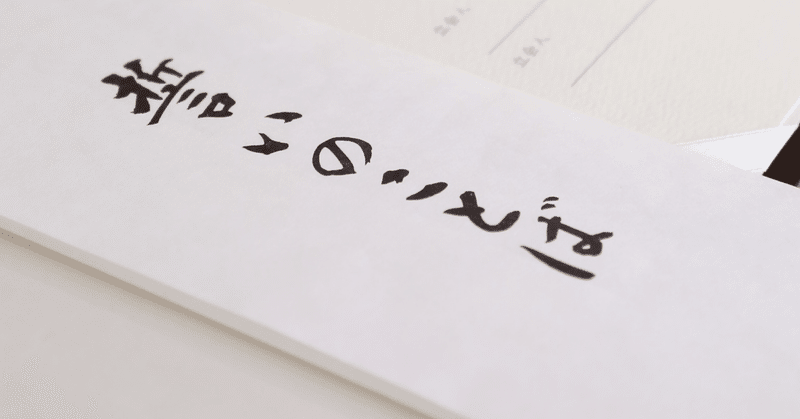 誓いのことば
立会人
立会人